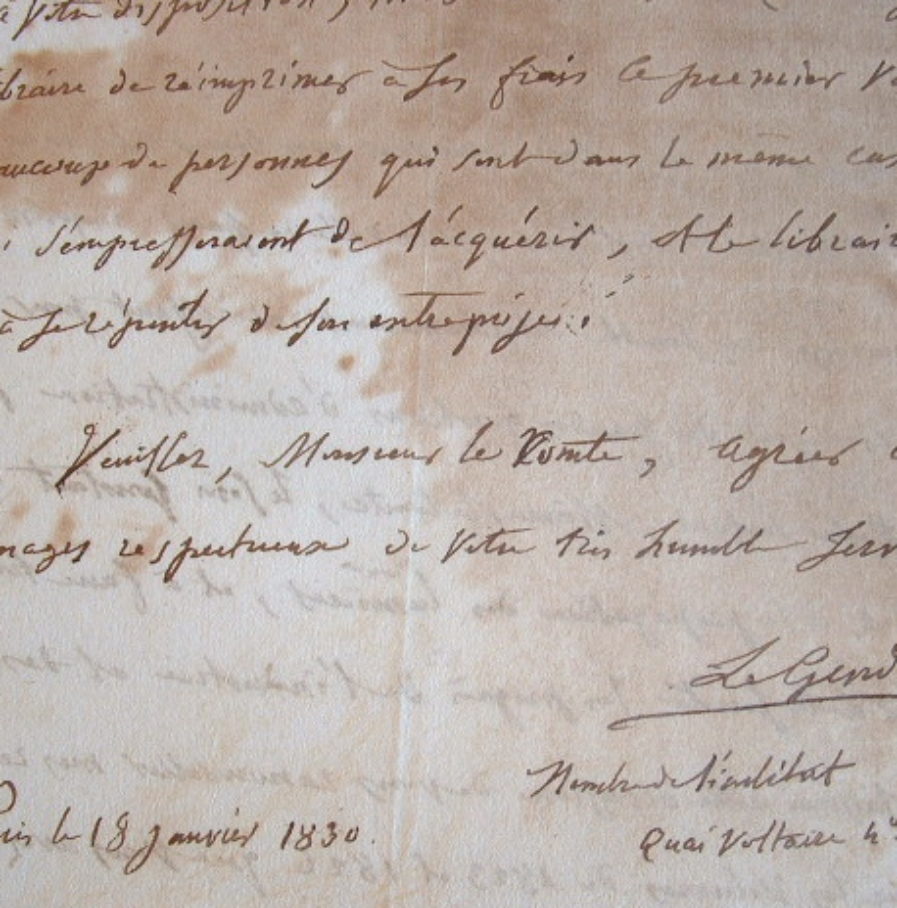 à Votre disposition,
libraire de réimprimer à ses frais le premier Vo
beaucoup de personnes qui sont dans le même cas
s'empresseraient de l'acquérir, et le librair
à se répentir de son entreprise.
Veuillez, Monsieur le Comte, agréer
mages respectueux de Votre très humble Serv
Le Gend
Membre de l'institut
Quai Voltaire n°
Paris le 18 Janvier 1830.